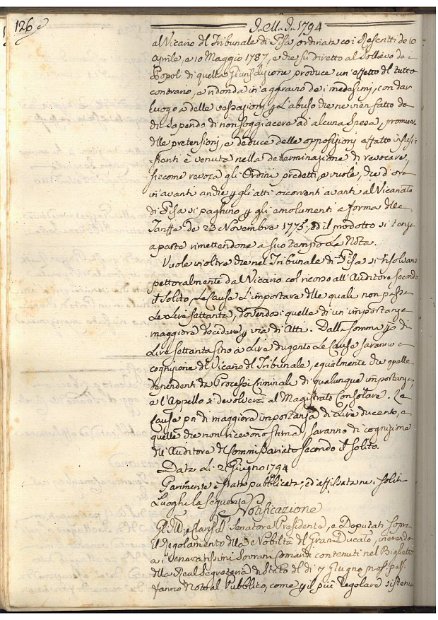 126
1794
al Vicario del Tribunale di Pisa ordinata coi Rescritti de 10
Aprile, e 10 Maggio 1787, e che si è diretto al sollievo de
Popoli di quella Giurisdizione produce un effetto del tutto
contrario, e ridonda in aggravio de i medesimi, con dar
luogo a delle vessazioni per l'abuso che ne vien fatto da
chi sapendo di non soggiacere ad alcuna spesa, promuove
delle pretensioni, e deduce delle opposizioni affatto
è venuta nella determinazione di revocare,
siccome revoca gli Ordini predetti, e vuole, che d'ora
in avanti anche per gli atti occorrenti avanti al Vicariato
di Pisa si paghino gli emolumenti a forma della
Tariffa de 22 Novembre 1775, ed il prodotto si tenga
a parte rimettendone a suo tempo la Nota.
Vuole inoltre che nel Tribunale di Pisa si risolvano
dal Vicario col ricorso all'Auditore secondo
il solito le Cause l'importare delle quali non passi
Lire settanta, dovendosi quelle di un'importanza
maggiore decidere per via di Atti. Dalla somma poi di
Lire settanta sino a Lire dugento le Cause saranno di
cognizione del Vicario del Tribunale, egualmente che quelle
dependenti da Processi Criminali di qualunque importanza,
e l'Appello si devolverà al Magistrato Consolare. Le
Cause poi di maggiore importanza di Lire ducento, e
quelle che non ricevono stima saranno di cognizione
dell'Auditore del Commissariato secondo il solito.
Data li 2 Giugno 1794
Parimente è stato pubblicata, ed affissata ne soliti
Luoghi la seguente
Notificazione
Gl'Ill. Senatore Presidente, e Deputati sopra
il Regolamento della Nobiltà del Gran Ducato, inerendo
a i Veneratissimi Sovrani Comandi contenuti nel Biglietto
della Real Segreteria di Stato del dì 7 Giugno
fanno noto al Pubblico, come per il più regolare sistema